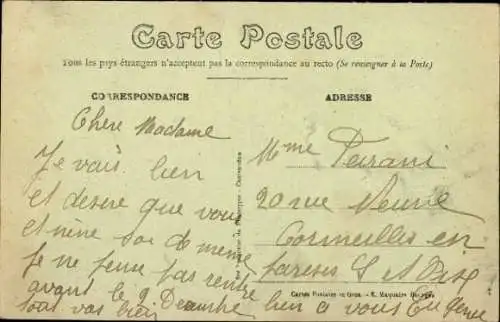 Carte Postale
Tous les pays étrangers n'acceptent pas la correspondance au recto (Se renseigner à la Poste)
CORRESPONDANCE
Chère Madame
Je vais bien
et desire que vous
et néne soi de meme
Je ne peux pas rentré
avant le 9 Dimanche
tout vas bien
ADRESSE
Mme
20 rue Neuve
Cormeilles en
Parisis S et Oise
bien à vous Eugenie